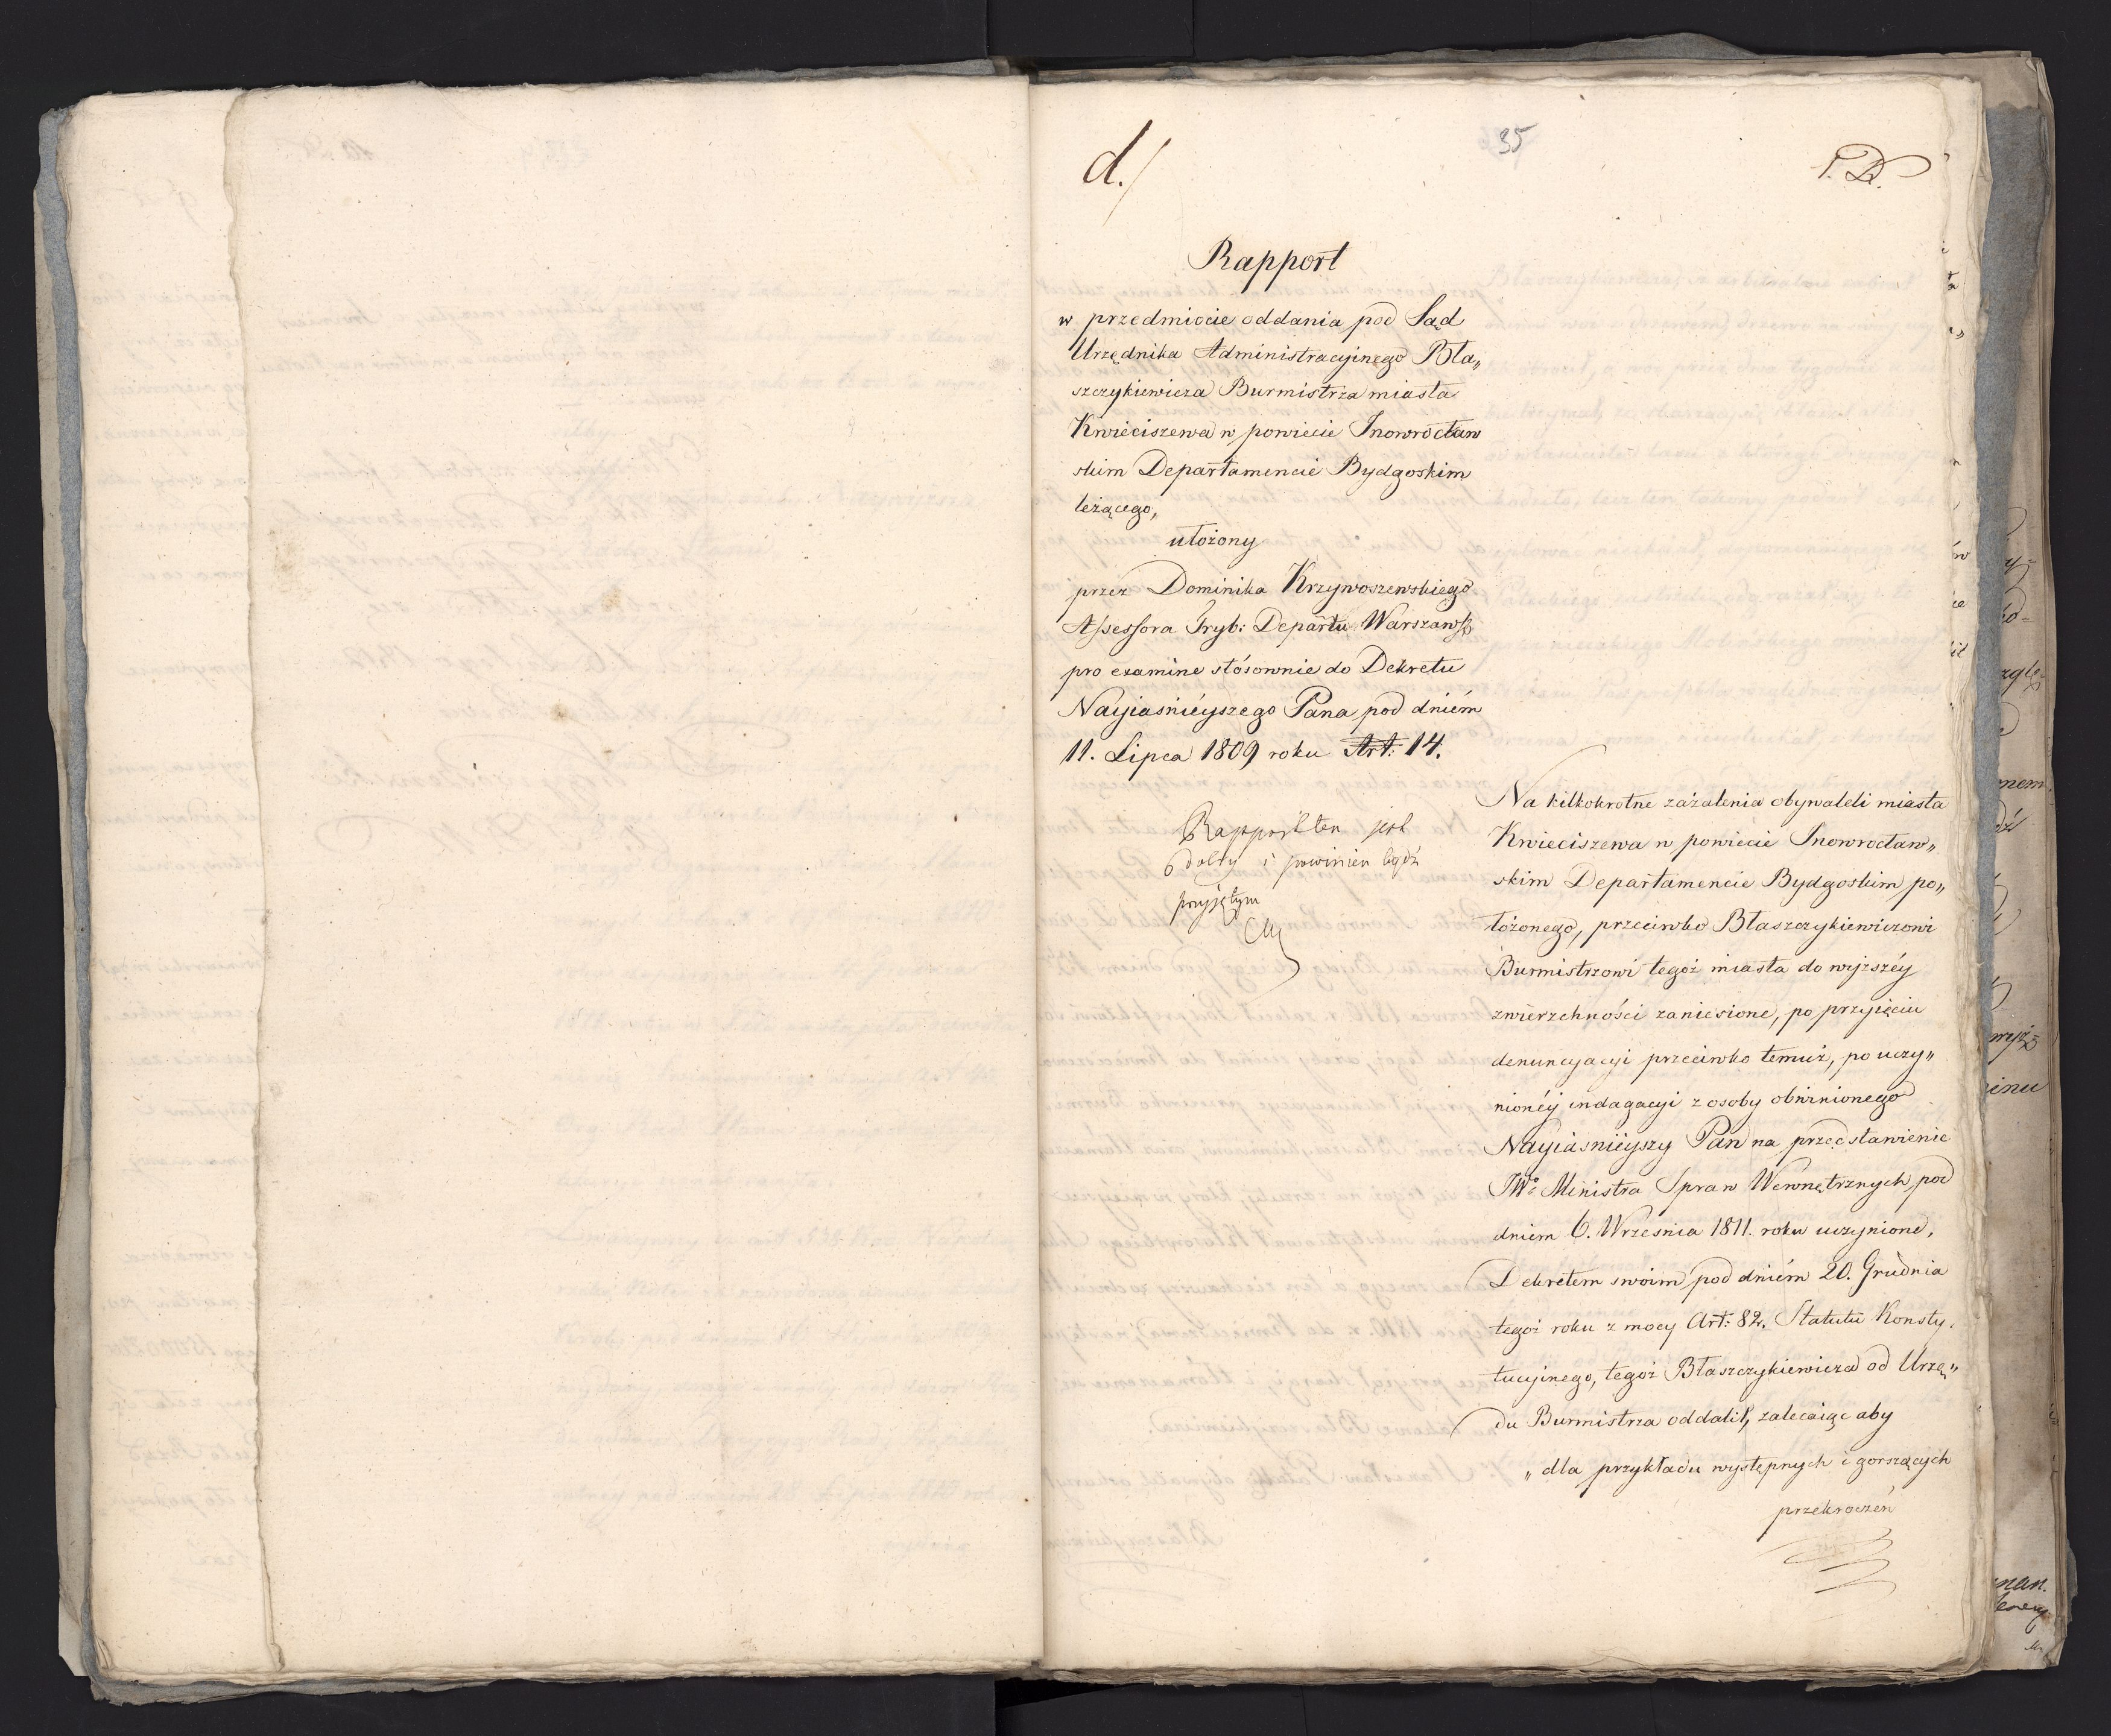 d./
35
Rapport
w przedmiocie oddania pod Sąd
Urzędnika Administracyjnego Bła„
szczykiewicza Burmistrza miasta
Kwieciszewa w powiecie Inowrocław
skim Departamencie Bydgoskim
leżącego,
ułożony
przez Dominika Krzywoszewskiego
Assessora Tryb: Departu Warszaws
pro examine stósownie do Dekretu
Nayiaśnieyszego Pana pod dniém
11. Lipca 1809 roku Art: 14.
Rapport ten jest
dobry i powinien bydź
przyjętym
Na kilkokrotne zażalenia obywateli miasta
Kwieciszewa w powiecie Inowrocław„
skim Departamencie Bydgoskim po„
łożonego, przeciwko Błaszczykiewiczowi
Burmistrzowi tegoż miasta do wyższéy
zwierzchności zaniesione, po przyięciu
denuncyacyi przeciwko temuż, po uczy„
nionéy indagacyi z osoby obwinionego
Nayiaśniéyszy Pan na przedstawienie
JWo Ministra Spraw Wewnętrznych pod
dniem 6. Września 1811. roku uczynione,
Dekretem swoim pod dniém 20. Grudnia
tegoż roku z mocy Art: 82. Statutu Konsty.
tucyinego, tegoż Błaszczykiewicza od Urzę„
du Burmistrza oddalił, zalecaiąc aby
„ dla przykładu występnych i gorszących
przekroczeń